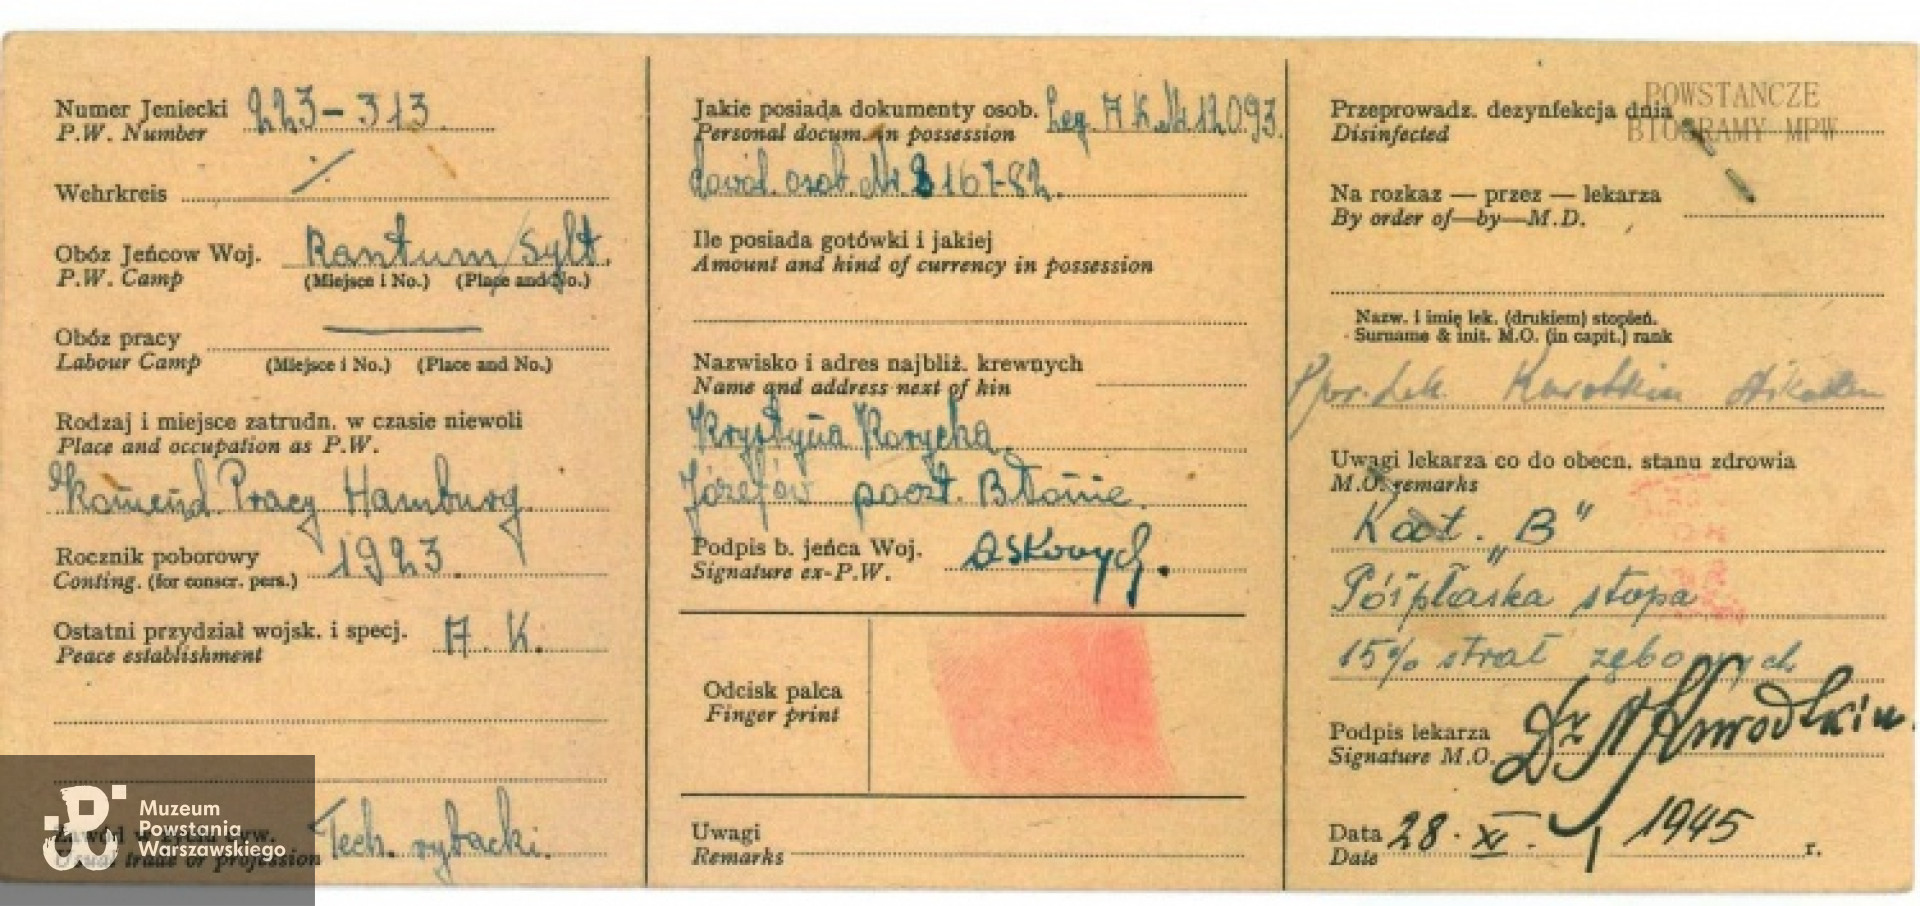 Numer Jeniecki 223-313.
P.W. Number
Wehrkreis
Obóz Jeńcow Woj. Rantum/Sylt.
P.W. Camp (Miejsce i No.) (Place and No.)
Obóz pracy
Labour Camp (Miejsce i No.) (Place and No.)
Rodzaj i miejsce zatrudn. w czasie niewoli
Place and occupation as P.W.
Komend. Pracy Hamburg
Rocznik poborowy 1923.
Conting. (for conscr. pers.)
Ostatni przydział wojsk. i specj. A. K.
Peace establishment
Zawód w życiu cyw. Tech. rybacki.
Usual trade or profession
Muzeum
Powstania
Warszawskiego
Jakie posiada dokumenty osob. Leg. A K. Nr 12093.
Personal docum. in possession
dowód. osob. Nr 8167-82.
Ile posiada gotówki i jakiej
Amount and kind of currency in possession
Nazwisko i adres najbliż. krewnych
Name and address next of kin
Krystyna Korycka
Józefów poczt. Błonie.
Podpis b. jeńca Woj.
Signature ex-P.W.
Odcisk palca
Finger print
Uwagi
Remarks
POWSTANCZE
BIOGRAMY MPW
Przeprowadz. dezynfekcja dnia
Disinfected
Na rozkaz — przez — lekarza
By order of—by—M.D.
Nazw. i imię lek. (drukiem) stopień.
Surname & init. M.O. (in capit.) rank
Ppor. lek.
Uwagi lekarza co do obecn. stanu zdrowia
M.O. remarks
Kat. „B"
Półpłaska stopa
15% strat zębowych
Podpis lekarza Dr
Signature M.O.
Data 28. XI. 1945 r.
Date